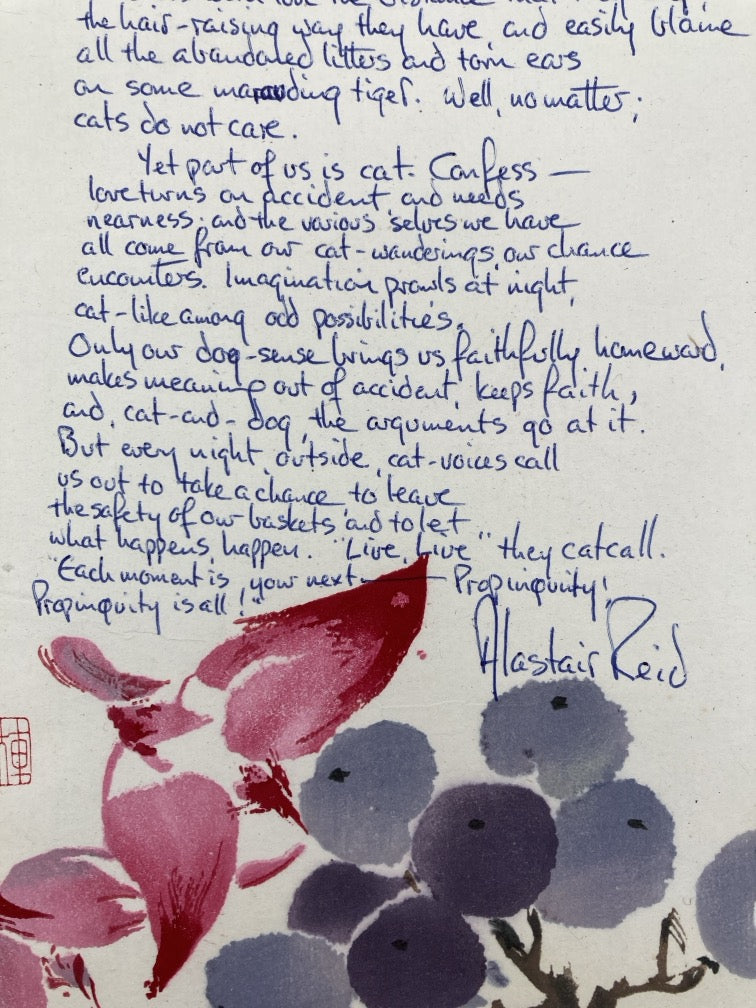 the hair-raising way they have, and easily blame
all the abandoned litters and torn ears
on some marauding tiger. Well, no matter;
cats do not care.
Yet part of us is cat. Confess —
love turns on accident, and needs
nearness; and the various selves we have
all come from our cat-wanderings, our chance
encounters. Imagination prowls at night,
cat-like among odd possibilities.
Only our dog-sense brings us faithfully homeward,
makes meaning out of accident, keeps faith,
and, cat-and-dog, the arguments go at it.
But every night, outside, cat-voices call
us out to take a chance, to leave
the safety of our baskets, and to let
what happens, happen. "Live, Live" they catcall.
"Each moment is your next — Propinquity!
Propinquity is all!"
Alastair Reid